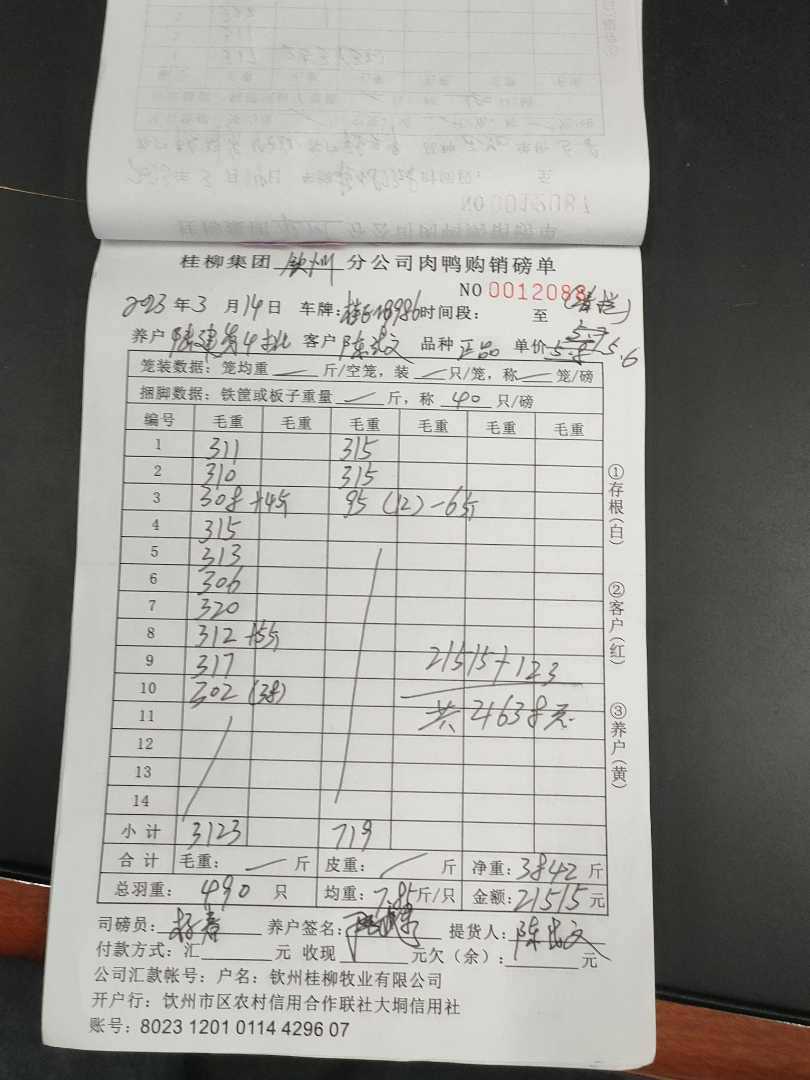 桂柳集团 钦州 分公司肉鸭购销磅单
NO 0012088
2023 年 3 月 14 日 车牌: 时间段: 至 (清栏)
养户 客户 品种 正品 单价 5.8 5.7 5.6
笼装数据: 笼均重 — 斤/空笼, 装 — 只/笼, 称 — 笼/磅
捆脚数据: 铁筐或板子重量 — 斤, 称 40 只/磅
编号 毛重 毛重 毛重 毛重 毛重 毛重
1 311 315
2 310 315
3 308 +4斤 95 (12) -6斤
4 315
5 313
6 306
7 320
8 312 +5斤
9 317 21515+123
10 302 (38)
11 共 21638元
12
13
14
小计 3123 719
合计 毛重: — 斤 皮重: — 斤 净重: 3842 斤
总羽重: 490 只 均重: 7.85 斤/只 金额: 21515 元
司磅员: 养户签名: 提货人:
付款方式: 汇 元 收现 元欠(余): 元
公司汇款帐号: 户名: 钦州桂柳牧业有限公司
开户行: 钦州市区农村信用合作联社大垌信用社
账号: 8023 1201 0114 4296 07
①存根(白)
②客户(红)
③养户(黄)